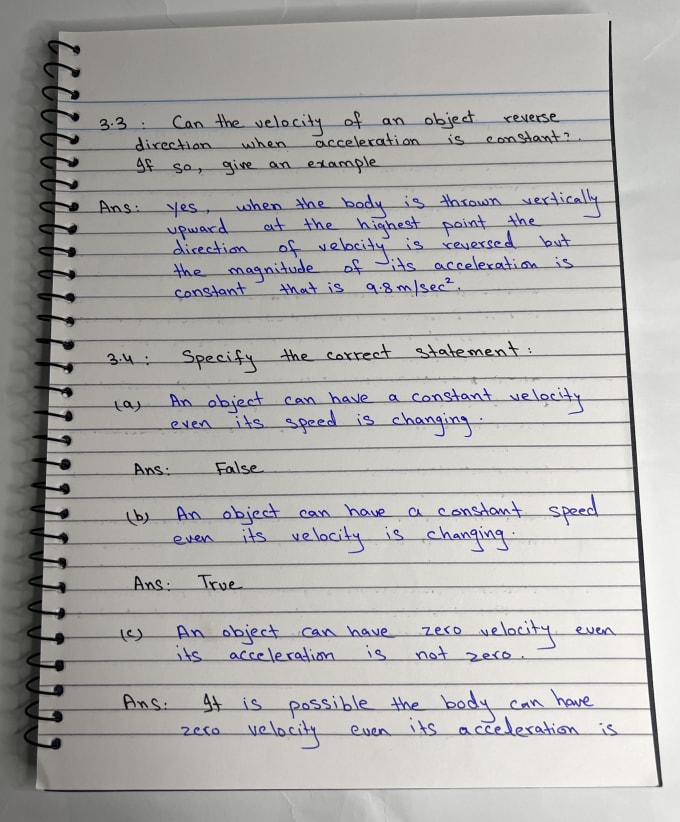 3.3 : Can the velocity of an object reverse
direction when acceleration is constant?
If so, give an example
Ans: yes, when the body is thrown vertically
upward at the highest point the
direction of velocity is reversed but
the magnitude of its acceleration is
constant that is 9.8 m/sec².
3.4 : Specify the correct statement :
(a) An object can have a constant velocity
even its speed is changing.
Ans: False
(b) An object can have a constant speed
even its velocity is changing.
Ans: True
(c) An object can have zero velocity even
its acceleration is not zero.
Ans: It is possible the body can have
zero velocity even its acceleration is